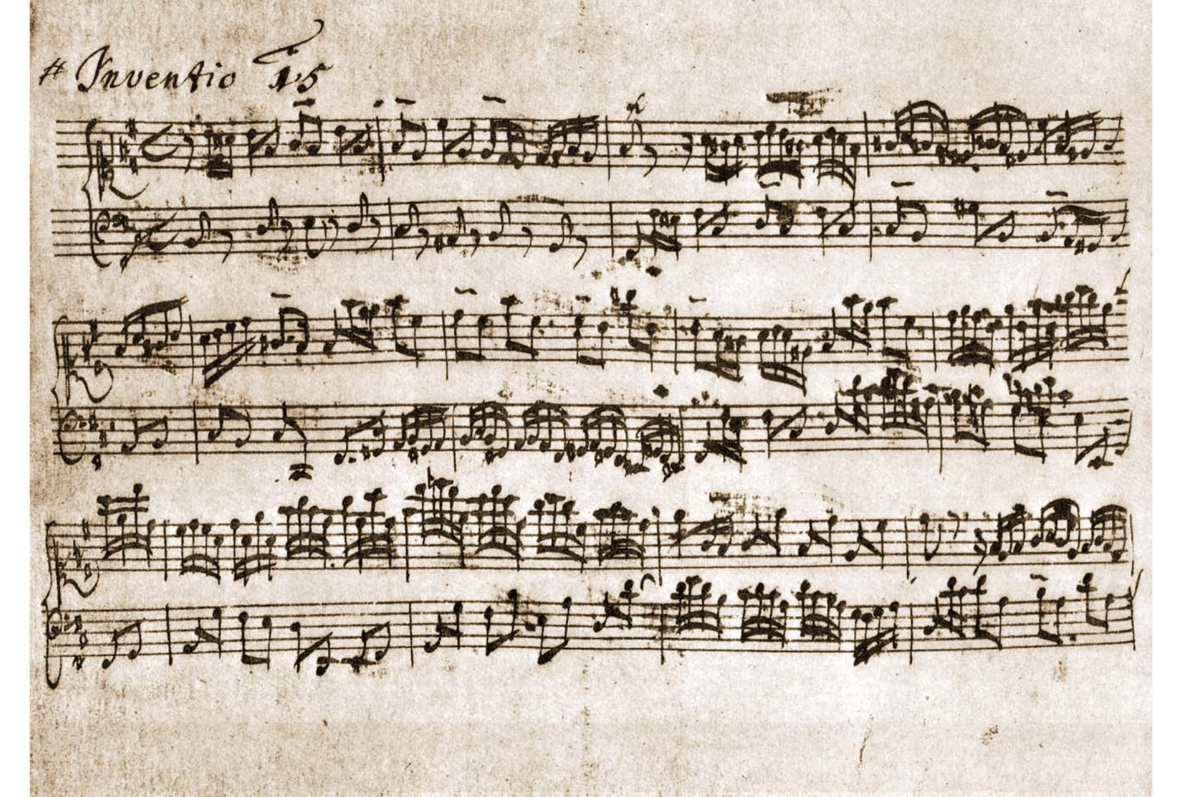 # Inventio 15